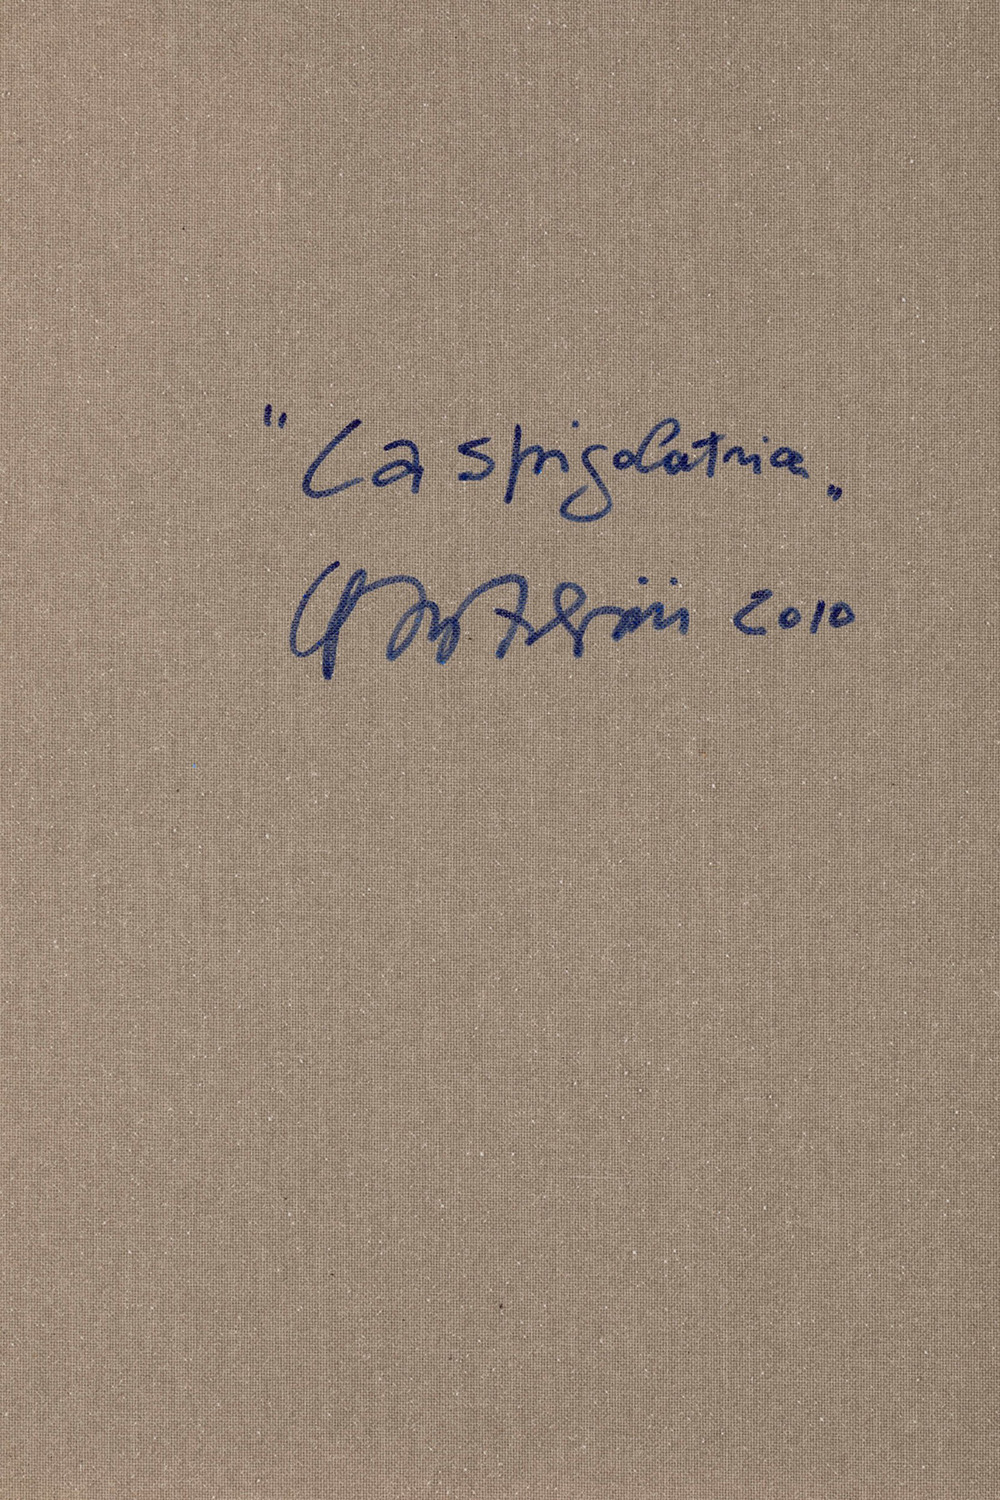 "La spigolatrice"
2010